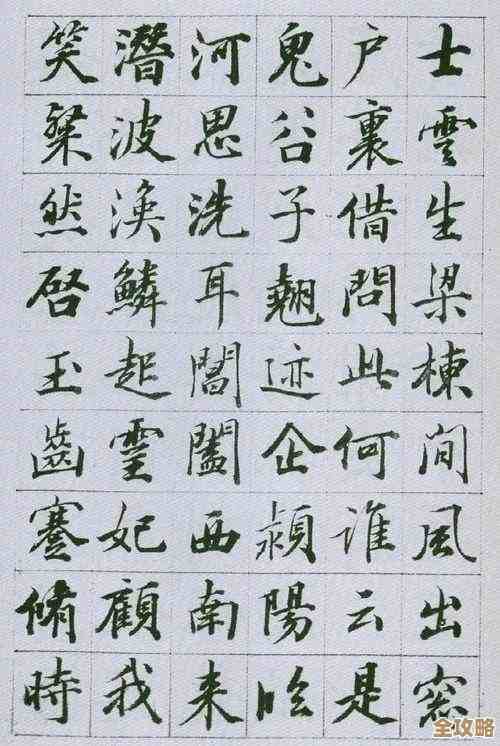 士雲生梁棟間風出窓
户裏借問此何誰云是
鬼谷子翹迹企潁陽临
河思洗耳閶闔西南来
潛波渙鱗起靈妃顧我
笑粲然启玉齒蹇脩時
全攻略